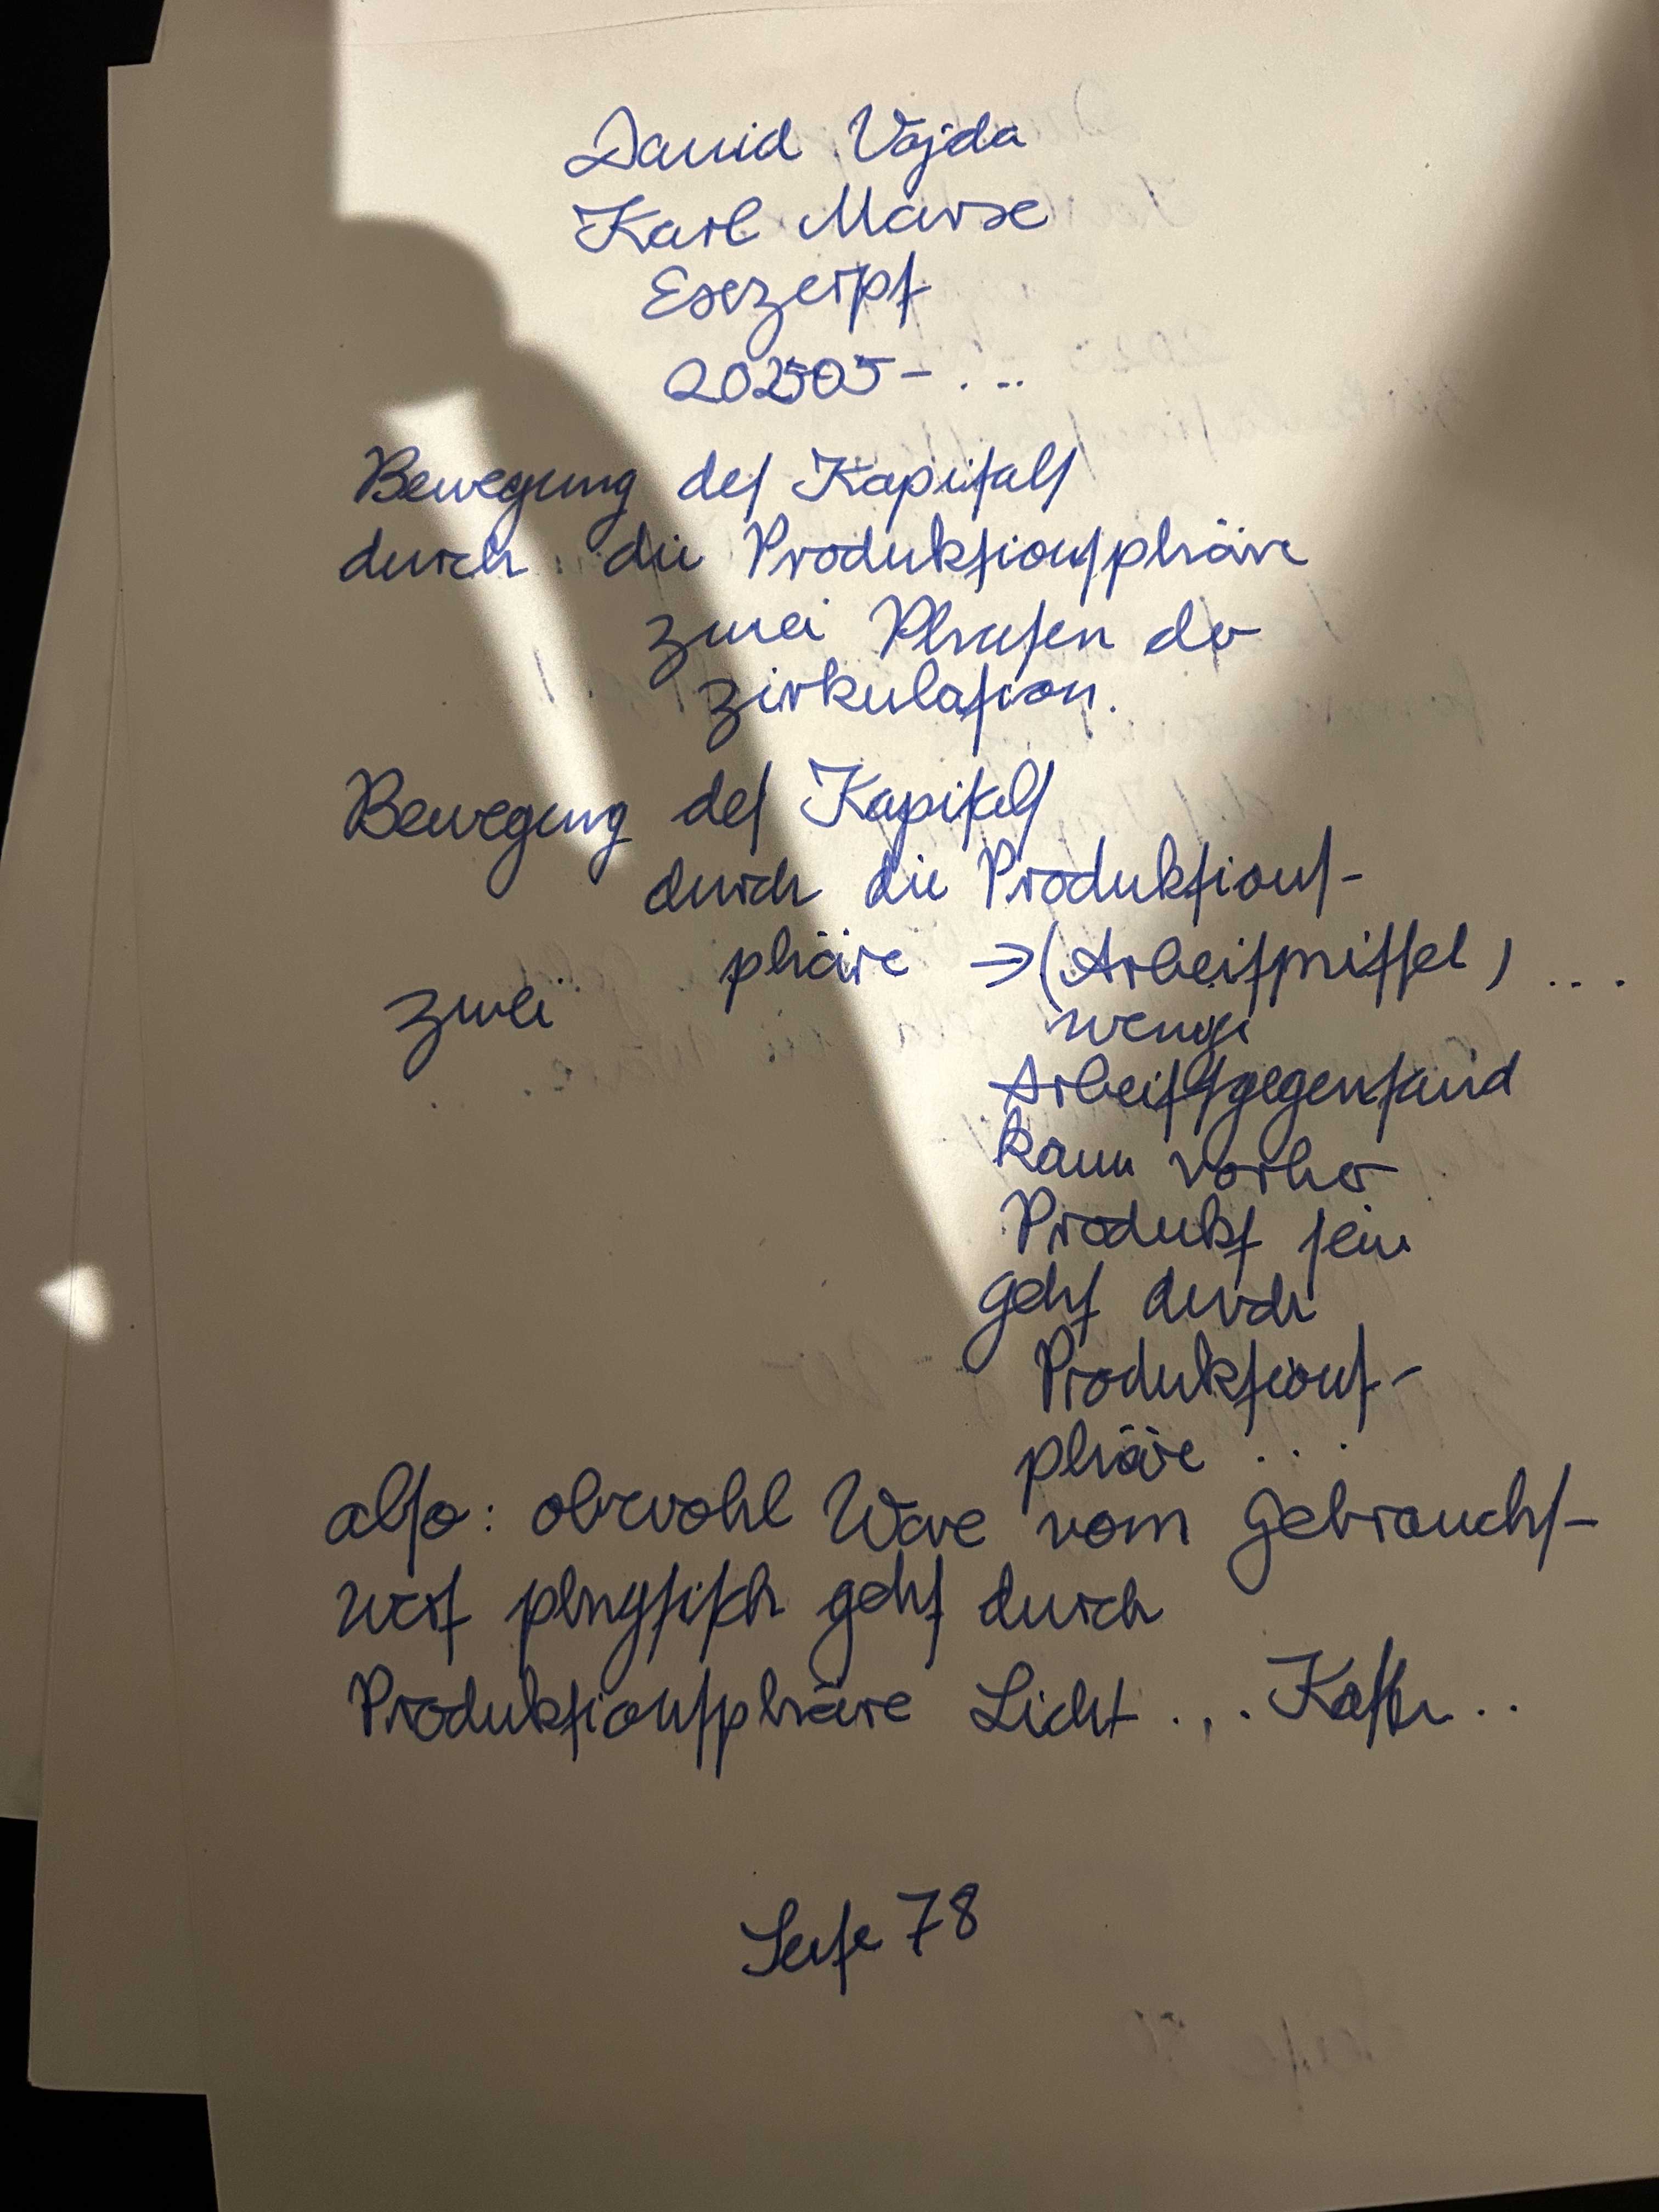 David Vajda
Karl Marx
Exzerpt
202505- ...
Bewegung des Kapitals
durch die Produktionssphäre
zwei Phasen der
Zirkulation.
Bewegung des Kapitals
durch die Produktions-
phäre => (Arbeitsmittel) ...
zwei
Arbeitsgegenstand
kann vorher
Produkt sein
geht durch
Produktions-
phäre ...
also: obwohl Ware vom Gebrauchs-
wert physisch geht durch
Produktionssphäre Licht ... Kaffee ...
Seite 78